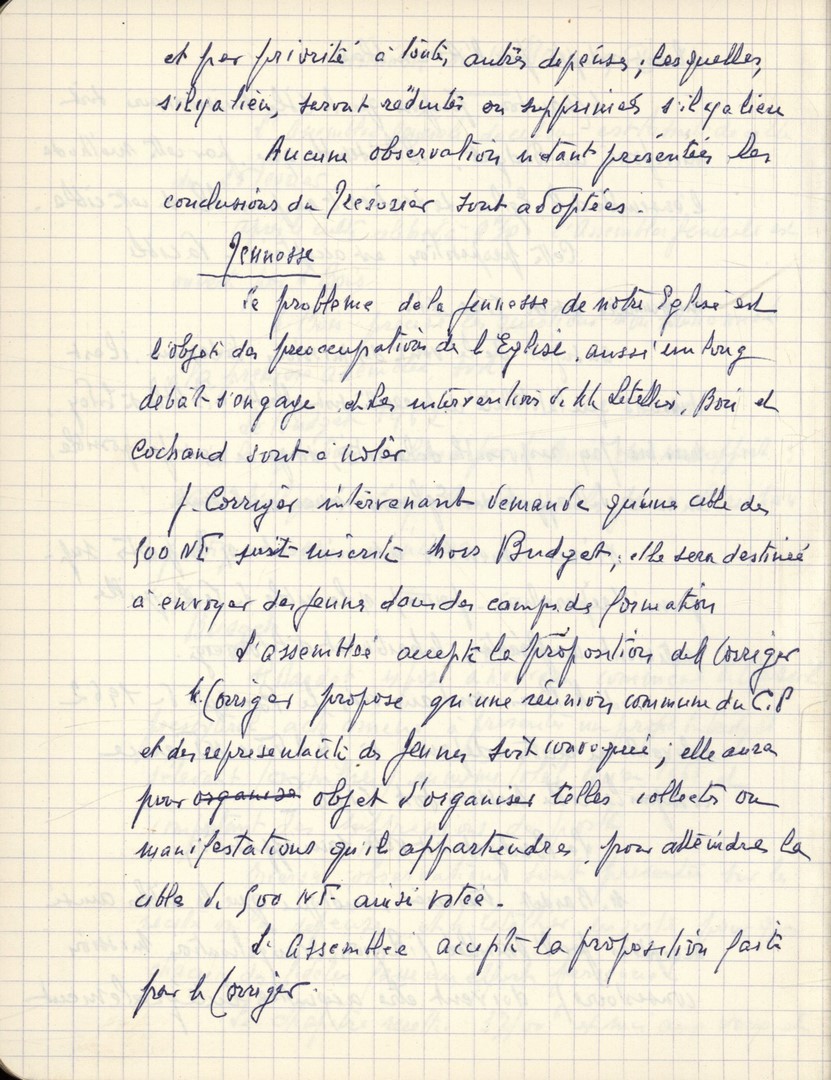 et par priorité à toutes autres dépenses ; lesquelles,
s'il y a lieu, seront réduites ou supprimées s'il y a lieu
Aucune observation n'étant présentées les
conclusions du Trésorier sont adoptées.
Jeunesse
Le problème de la jeunesse de notre Eglise est
l'objet des préoccupations de l'Eglise, aussi un long
débat s'engage, et les interventions de MM Letellier, Bori et
Cochand sont à noter
J. Corriger intervenant demande qu'une cible de
500 NF soit inscrite hors Budget ; elle sera destinée
à envoyer des jeunes dans des camps de formation
L'assemblée accepte la proposition de M Corriger
M. Corriger propose qu'une réunion commune du C.P
et des représentants des Jeunes soit convoquée ; elle aura
pour organiser objet d'organiser telles collectes ou
manifestations qu'il appartiendra, pour atteindre la
cible de 500 NF. ainsi votée.
L'Assemblée accepte la proposition faite
par M Corriger.